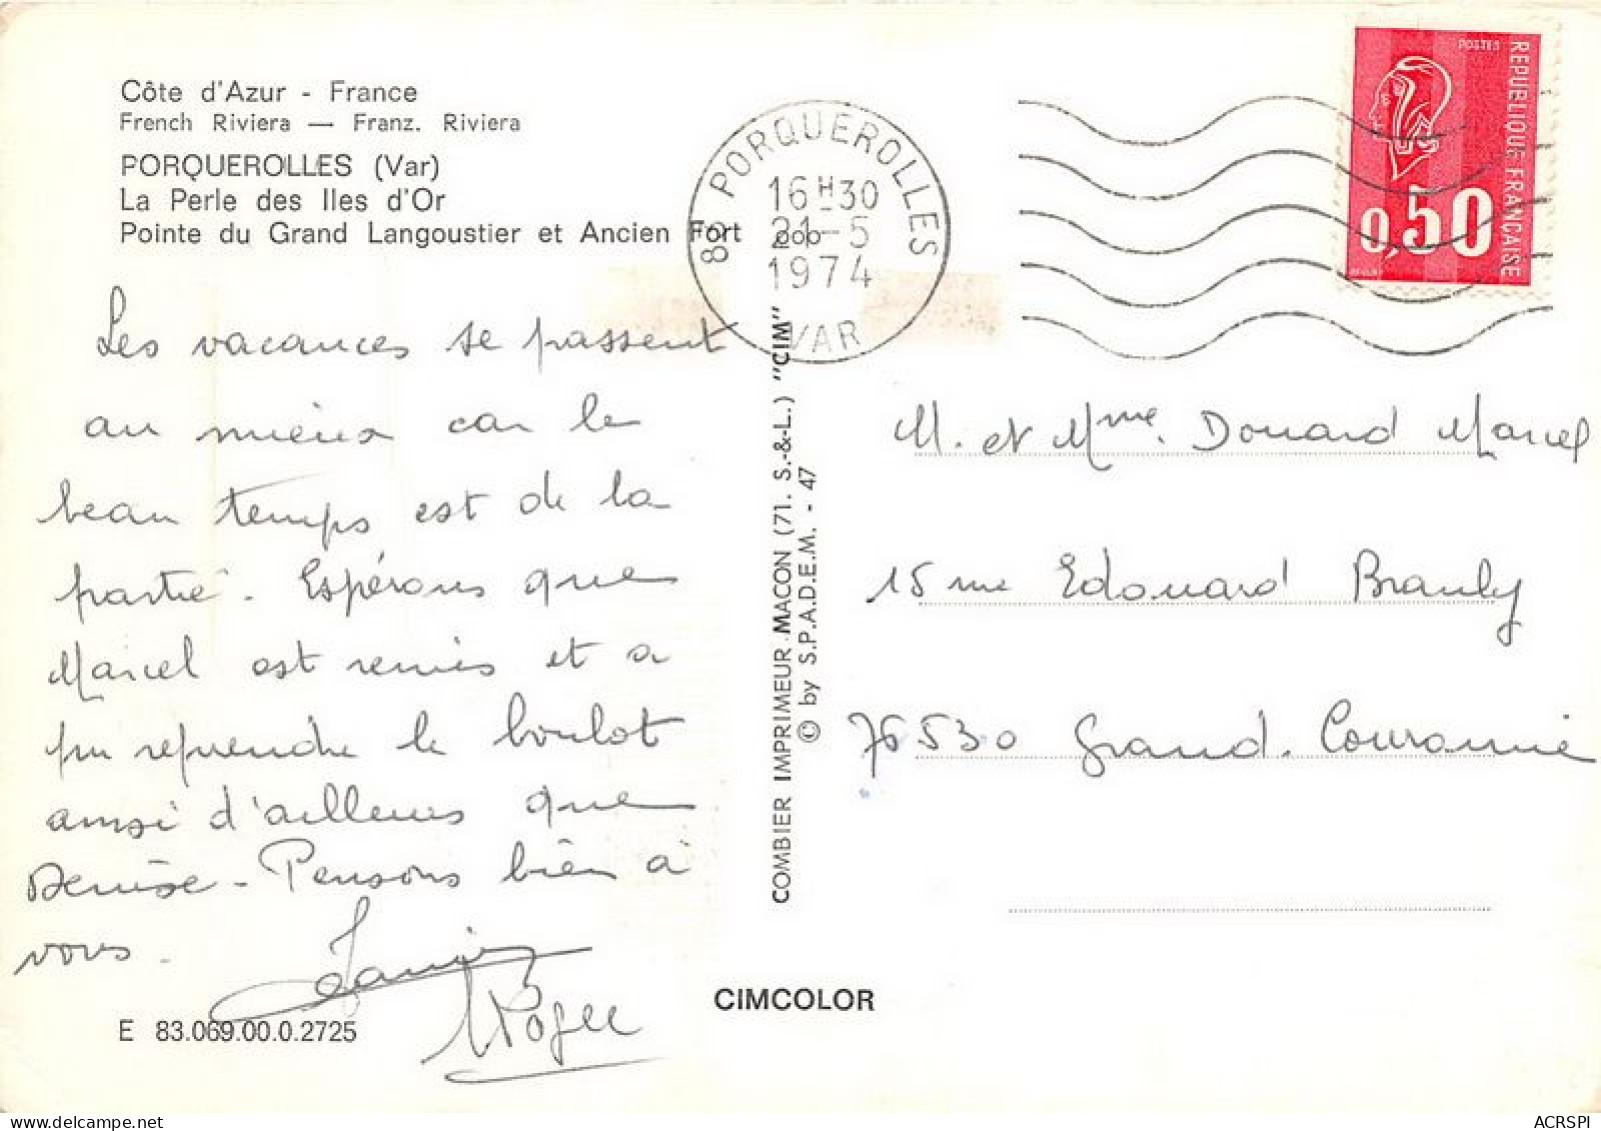 Côte d'Azur - France
French Riviera — Franz. Riviera
PORQUEROLLES (Var)
La Perle des Iles d'Or
Pointe du Grand Langoustier et Ancien Fort
83 PORQUEROLLES
16H30
21-5
1974
VAR
POSTES
REPUBLIQUE FRANÇAISE
0,50
Les vacances se passent
au mieux car le
beau temps est de la
partie. Espérons que
Marcel est remis et a
pu reprendre le boulot
ainsi d'ailleurs que
Denise - Pensons bien à
vous.
Roger
COMBIER IMPRIMEUR MACON (71. S.-&-L.) "CIM"
© by S.P.A.D.E.M. - 47
M. et Mme. Douard Marcel
15 rue Edouard Branly
76530 Grand. Couronne
E 83.069.00.0.2725
CIMCOLOR
ACRSPI